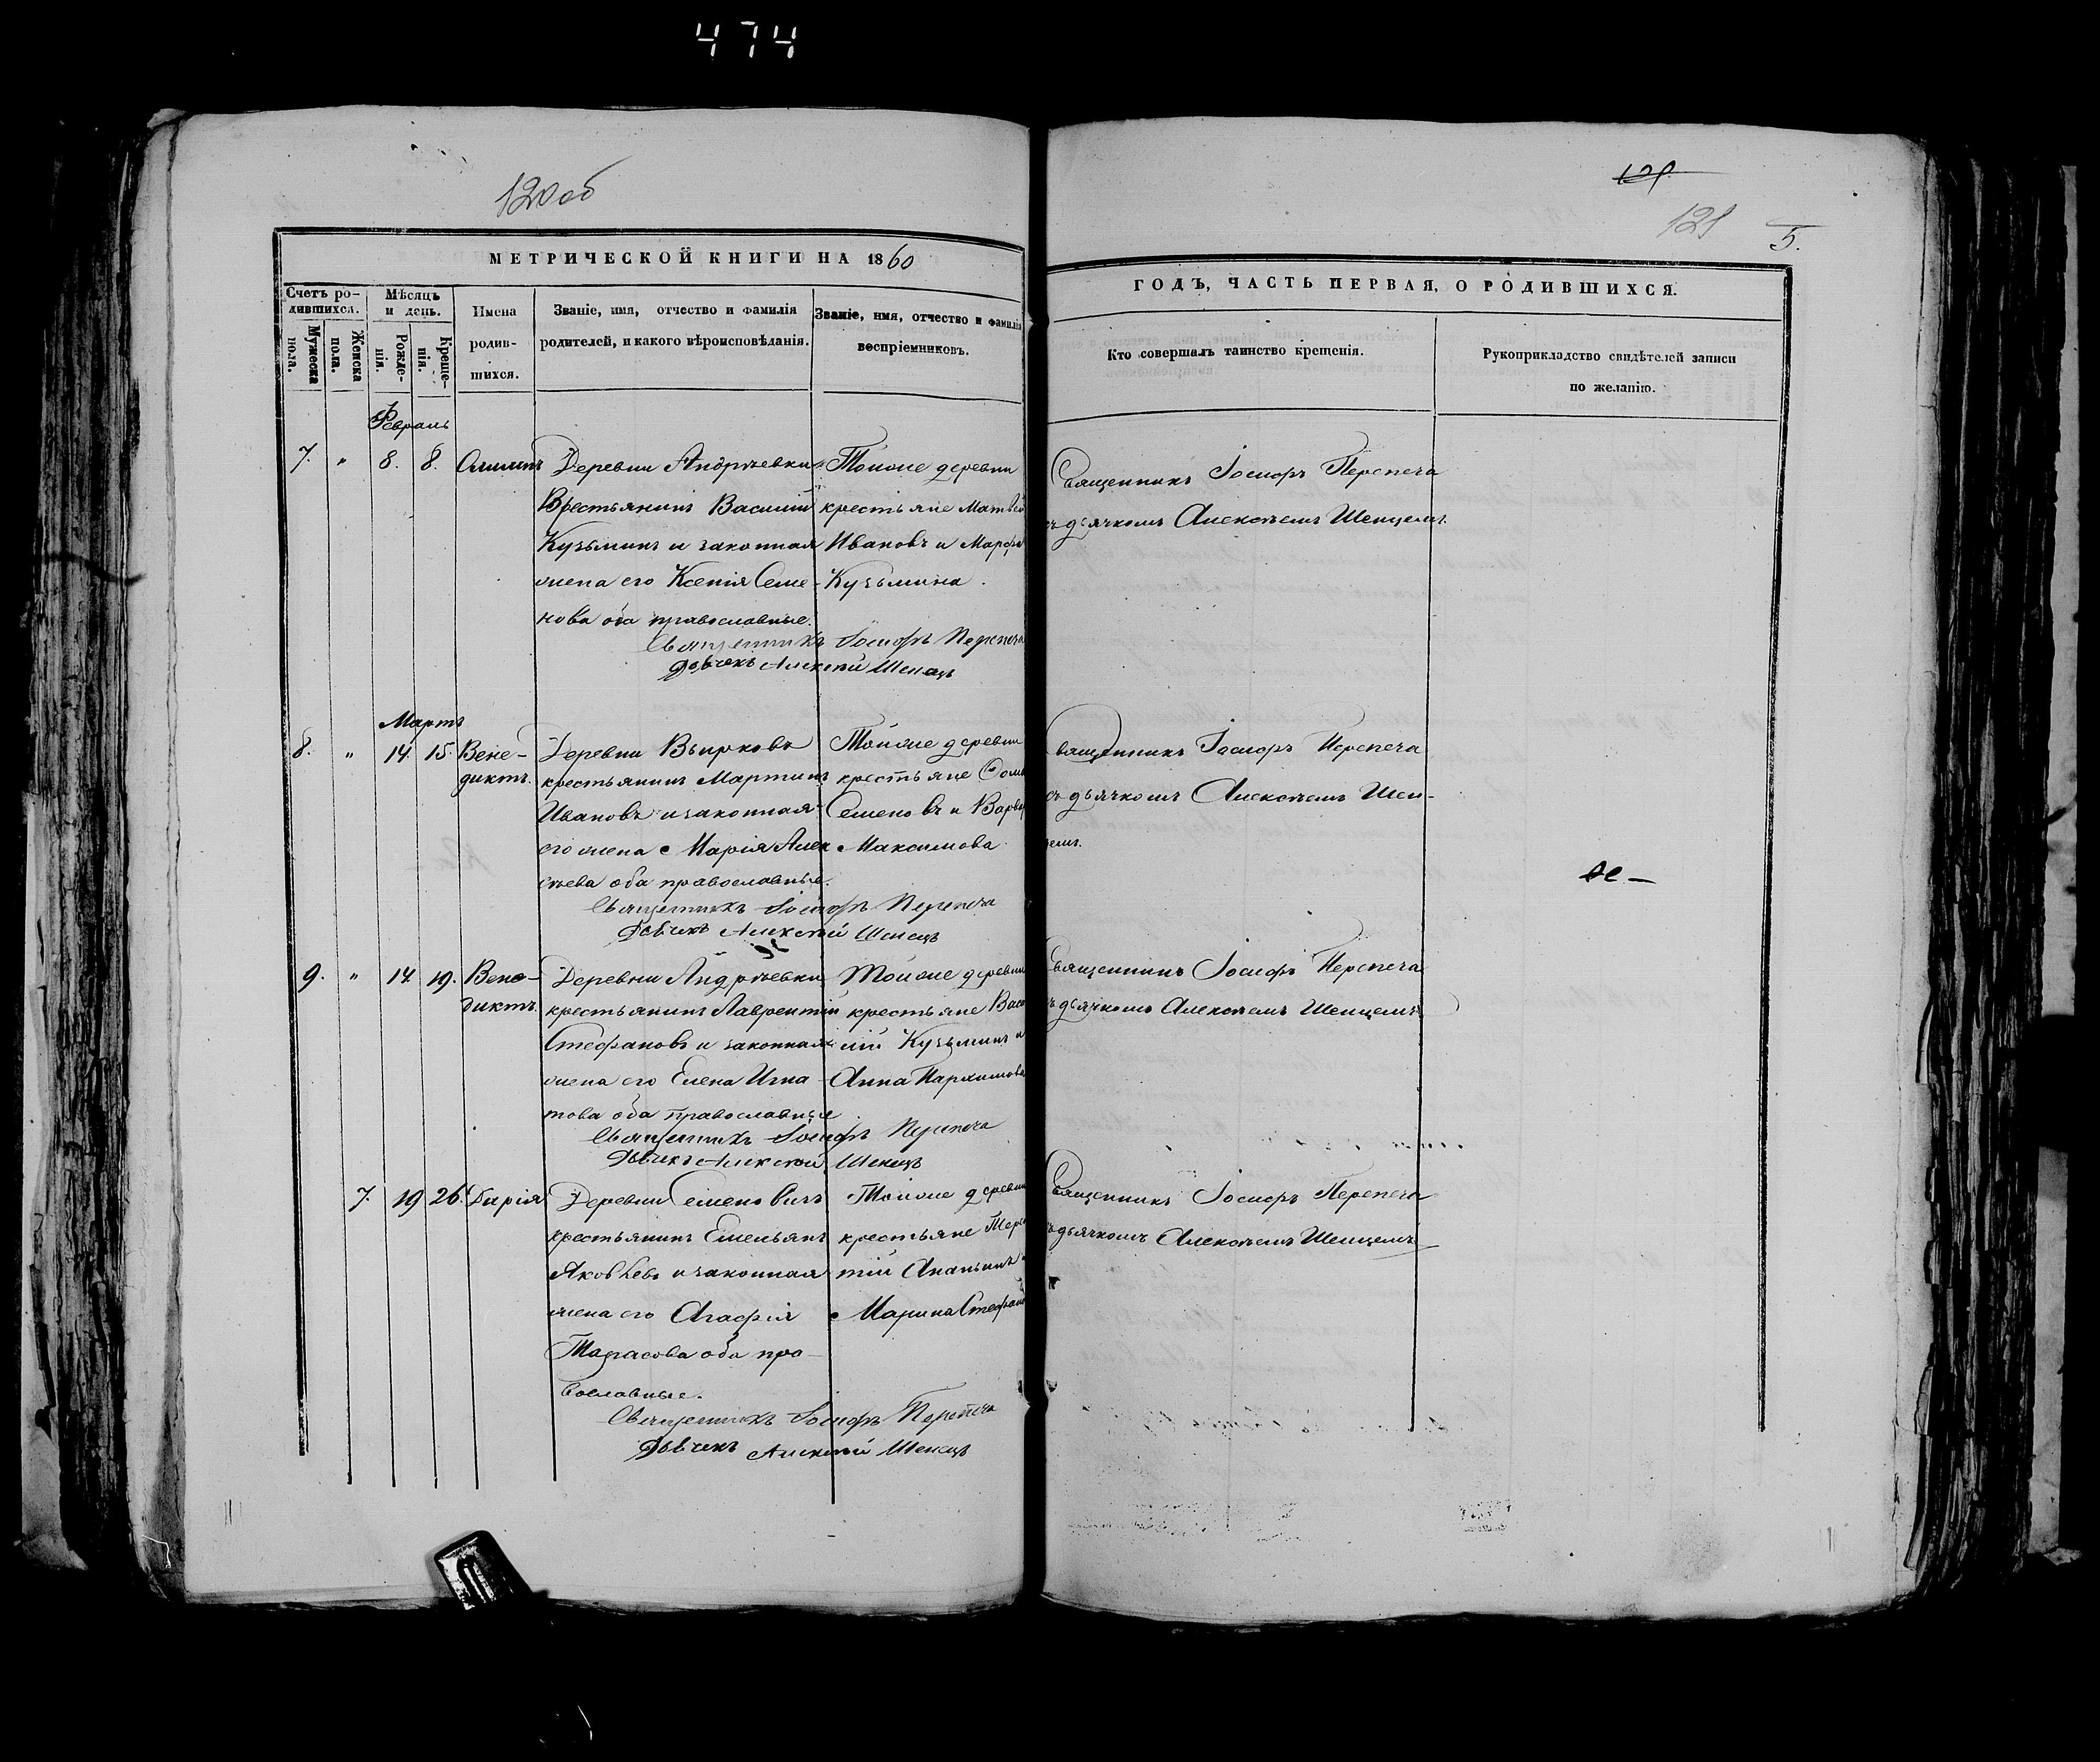 474
120 об
121
121
5.
МЕТРИЧЕСКОЙ КНИГИ НА 1860
ГОДЪ, ЧАСТЬ ПЕРВАЯ, О РОДИВШИХСЯ.
Счетъ ро-
дившихся.
Мужеска
пола.
Женска
пола.
Мѣсяцъ
и день.
Рожде-
нія.
Креще-
нія.
Имена
родив-
шихся.
Званіе, имя, отчество и фамилія
родителей, и какого вѣроисповѣданія.
Званіе, имя, отчество и фамилія
воспріемниковъ.
Кто совершалъ таинство крещенія.
Рукоприкладство свидѣтелей записи
по желанію.
Февраль
7. " 8. 8.
Деревни Андрѣевки
Крестьянинъ Василій
Кузьминъ и законная
жена его Ксенія Семе-
нова оба православные.
Тойже деревни
крестьяне Матвѣй
Ивановъ и Марфа
Кузьмина.
Священникъ Іосифъ Перепеча
Дьячекъ Алексѣй Шенецъ
Священникъ Іосифъ Перепеча
съ дьячкомъ Алексѣемъ Шенцемъ.
Мартъ
8. " 14. 15. Вене-
диктъ.
Деревни
крестьянинъ Мартинъ
Ивановъ и законная
его жена Марія Алек
сѣева оба православные.
Тойже деревни
крестьяне
Семеновъ и Варва
Максимова
Священникъ Іосифъ Перепеча
Дьячекъ Алексѣй Шенецъ
Священникъ Іосифъ Перепеча
съ дьячкомъ Алексѣемъ Шен-
цемъ.
9. " 14 19. Вене-
диктъ.
Деревни Андрѣевки
крестьянинъ Лаврентій
Стефановъ и законная
жена его Елена Игна
това оба православные
Тойже деревни
крестьяне Васи
лій Кузьминъ и
Анна Пархимова
Священникъ Іосифъ Перепеча
Дьячекъ Алексѣй Шенецъ
Священникъ Іосифъ Перепеча
съ дьячкомъ Алексѣемъ Шенцемъ
7. 19 26. Дарія
Деревни Семеновичъ
крестьянинъ Емельянъ
Яковлевъ и законная
жена его Агафія
Тарасова оба пра-
вославные.
Тойже деревни
крестьяне Терен
тій Ананьинъ и
Марина Стефано
Священникъ Іосифъ Перепеча
Дьячекъ Алексѣй Шенецъ
Священникъ Іосифъ Перепеча
съ дьячкомъ Алексѣемъ Шенцемъ